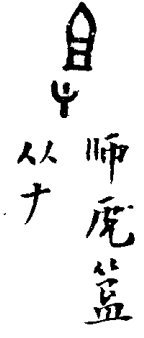 师虎簋
从𠂇